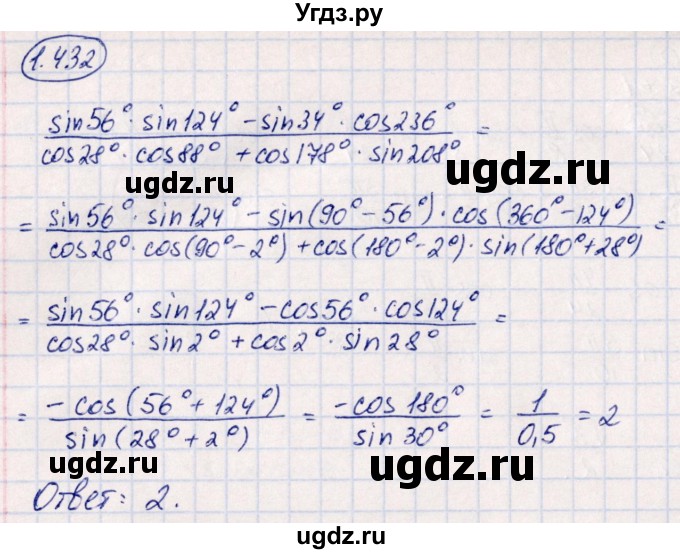 Угдз.ру
1.432
sin56°·sin124° – sin34°·cos236° / cos28°·cos88° + cos178°·sin208° =
ugdz.ru
ugdz.ru
= sin56°·sin124° – sin(90°–56°)·cos(360°–124°) / cos28°·cos(90°–2°) + cos(180°–2°)·sin(180°+28°) =
= sin56°·sin124° – cos56°·cos124° / cos28°·sin2° + cos2°·sin28° =
ugdz.ru
= –cos(56°+124°) / sin(28°+2°) = –cos180° / sin30° = 1 / 0,5 = 2
ugdz.ru
ugdz.ru
Ответ: 2.
ugdz.ru